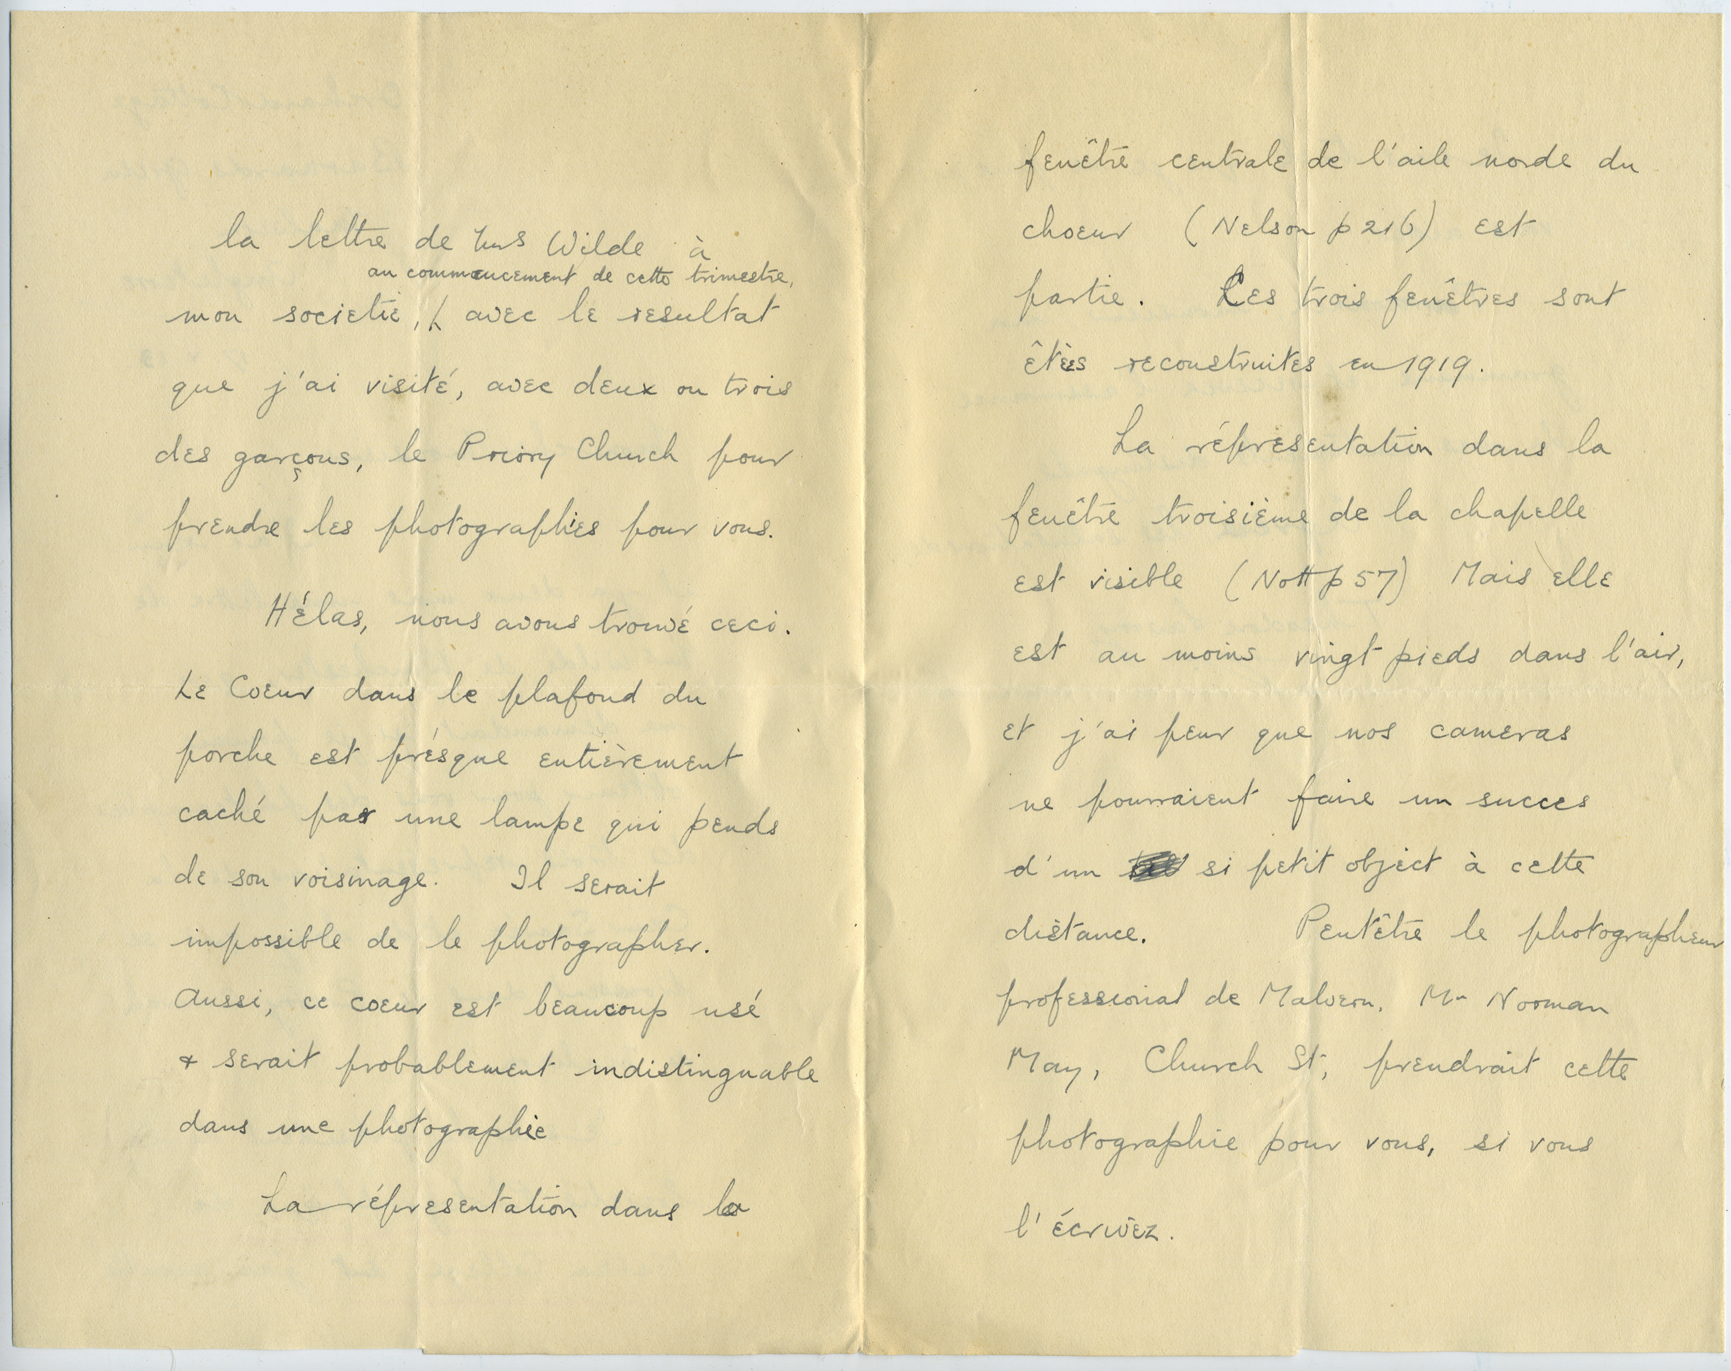 la lettre de Mrs Wilde à
au commencement de cette trimestre,
mon societie, avec le resultat
que j'ai visité, avec deux ou trois
des garçons, le Priory Church pour
prendre les photographies pour vous.
Hélas, nous avons trouvé ceci.
Le Coeur dans le plafond du
porche est présque entièrement
caché par une lampe qui pends
de son voisinage. Il serait
impossible de le photographer.
Aussi, ce coeur est beaucoup usé
& serait probablement indistinguable
dans une photographie
La réprésentation dans la
fenêtre centrale de l'aile norde du
choeur (Nelson p 216) est
partie. Les trois fenêtres sont
êtès reconstruites en 1919.
La réprésentation dans la
fenêtre troisième de la chapelle
est visible (Nott p 57) Mais elle
est au moins vingt pieds dans l'air,
et j'ai peur que nos cameras
ne pourraient faire un succes
d'un si petit object à cette
distance. Peutêtre le photographeur
professional de Malvern, Mr Norman
May, Church St, prendrait cette
photographie pour vous, si vous
l'écrivez.